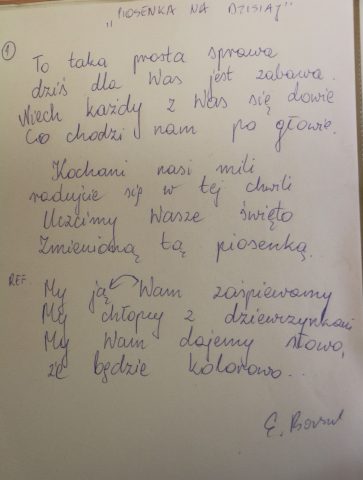 „PIOSENKA NA DZISIAJ”
1 To taka prosta sprawa
dziś dla Was jest zabawa.
Niech każdy z Was się dowie
Co chodzi nam po głowie.
Kochani nasi mili
radujcie się w tej chwili
Uczcimy Wasze święto
Zmienioną tą piosenką.
REF. My ją Wam zaśpiewamy
My chłopcy z dziewczynkami
My Wam dajemy słowo,
że będzie kolorowo...
E.